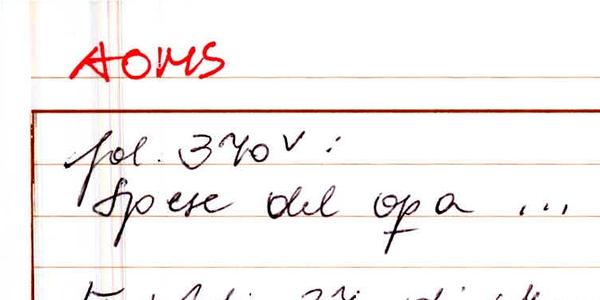 AOMS
fol. 370v:
Spese del opa ...